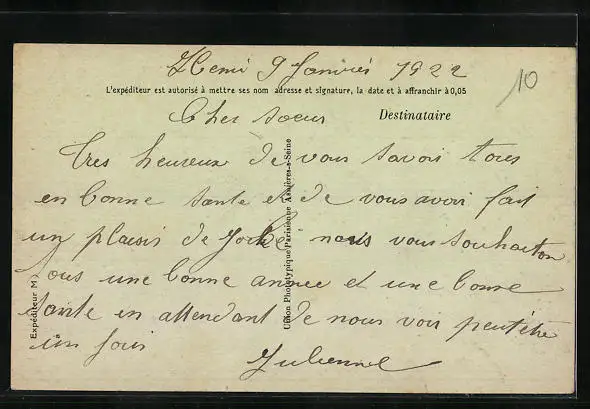 9 Janvier 1922
10
L'expéditeur est autorisé à mettre ses nom adresse et signature, la date et à affranchir à 0,05
Cher soeur
Destinataire
Tres heureux de vous savoir tous
en bonne sante et de vous avoir fait
un plaisir de nous vous souhaiton
tous une bonne annee et une bonne
sante en attendant de nous voir peutétre
un jour
Julienne
Expéditeur M
Union Phototypique Parisienne Asnières-s-Seine